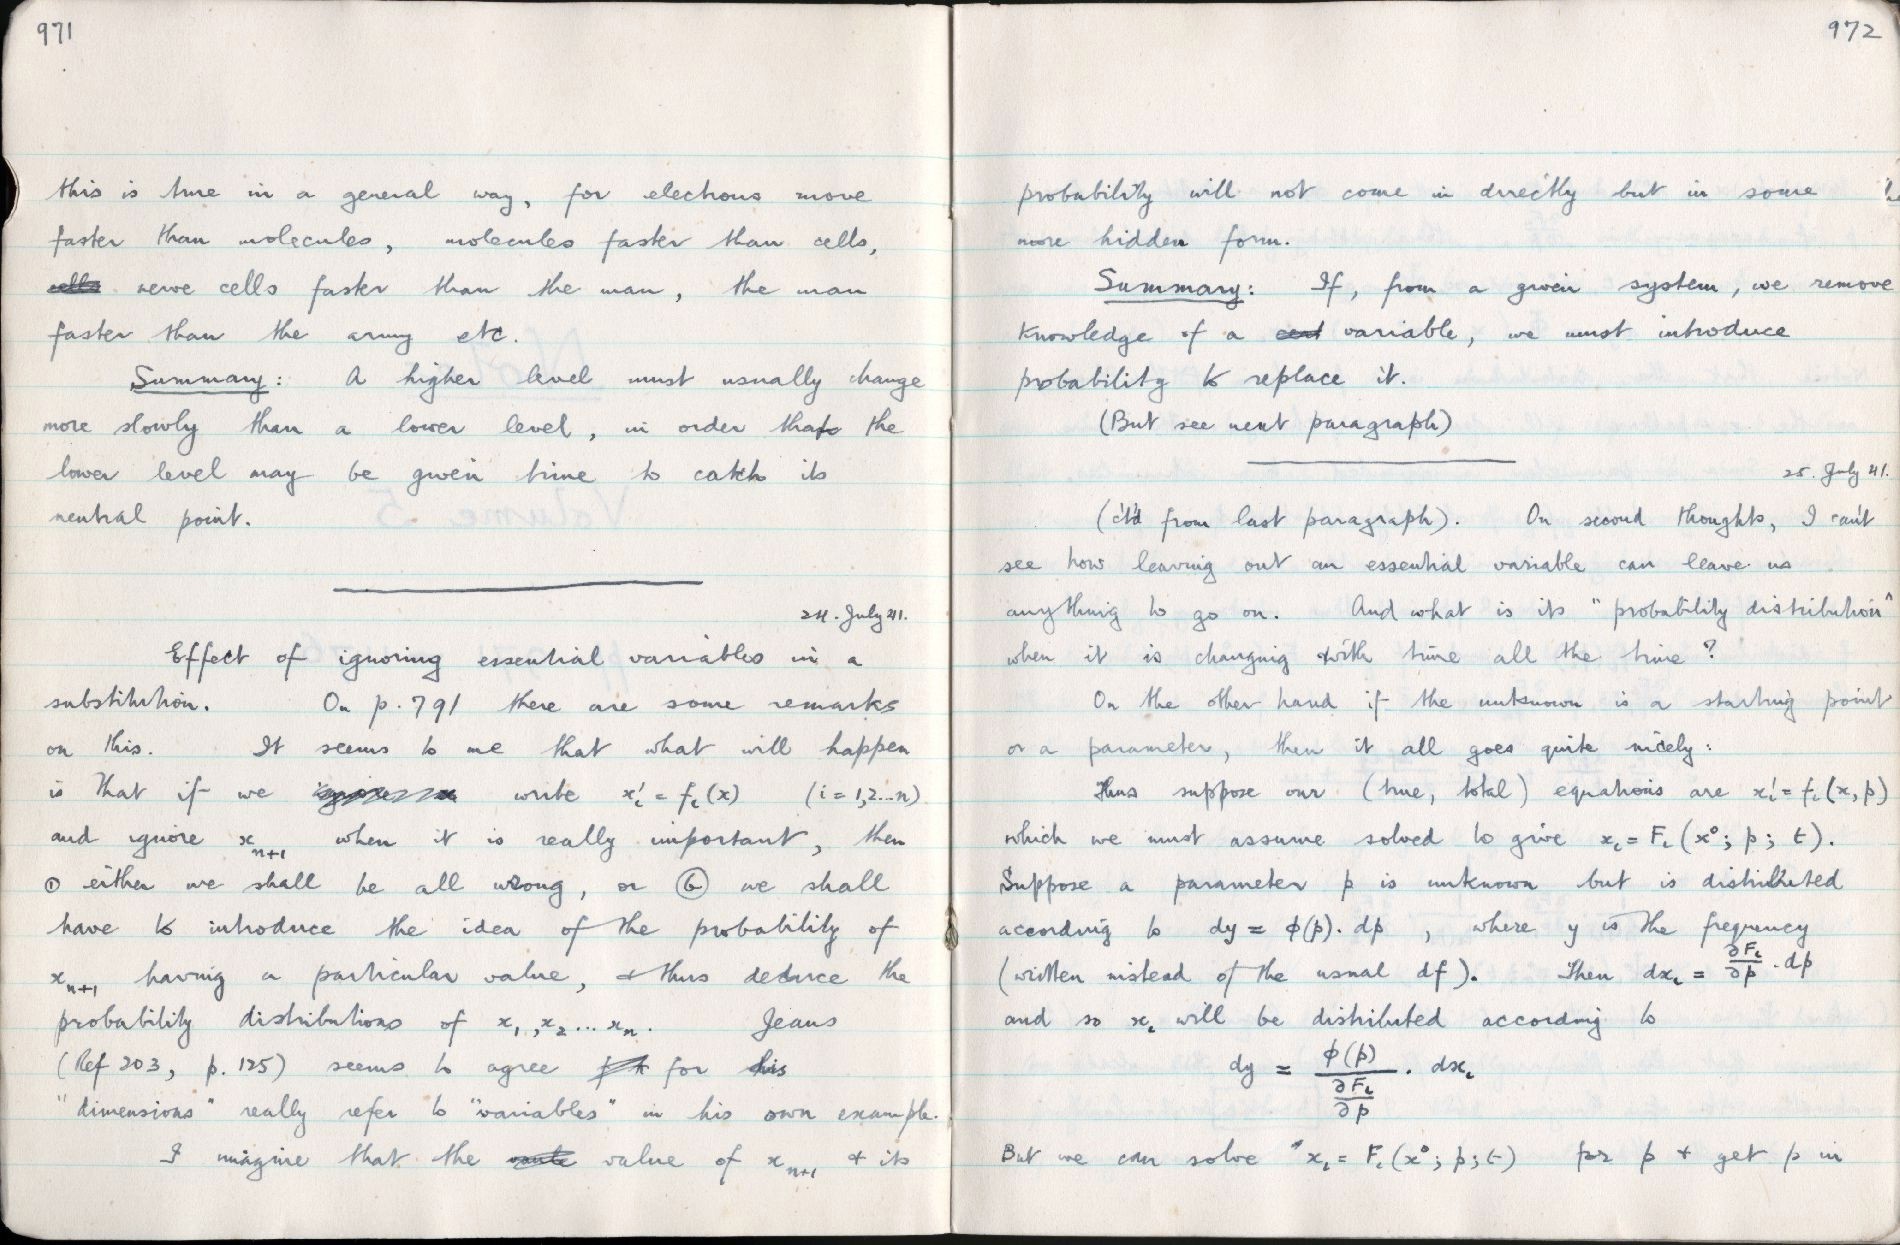 971
this is true in a general way, for electrons move
faster than molecules, molecules faster than cells,
cells nerve cells faster than the man, the man
faster than the army etc.
Summary: A higher level must usually change
more slowly than a lower level, in order that the
lower level may be given time to catch its
neutral point.
24. July 41.
Effect of ignoring essential variables in a
substitution. On p. 791 there are some remarks
on this. It seems to me that what will happen
is that if we write x'ᵢ = fᵢ(x) (i = 1,2...n)
and ignore xₙ₊₁ when it is really important, then
① either we shall be all wrong, or ② we shall
have to introduce the idea of the probability of
xₙ₊₁ having a particular value, & thus deduce the
probability distributions of x₁, x₂ ... xₙ. Jeans
(Ref 203, p. 125) seems to agree for his
"dimensions" really refer to "variables" in his own example.
I imagine that the value of xₙ₊₁ & its
972
probability will not come in directly but in some
more hidden form.
Summary: If, from a given system, we remove
knowledge of a variable, we must introduce
probability to replace it.
(But see next paragraph)
25. July 41.
(ct'd from last paragraph). On second thoughts, I can't
see how leaving out an essential variable can leave us
anything to go on. And what is its "probability distribution"
when it is changing with time all the time?
On the other hand if the unknown is a starting point
or a parameter, then it all goes quite nicely:
Thus suppose our (true, total) equations are x'ᵢ = fᵢ(x, p)
which we must assume solved to give xᵢ = Fᵢ(x°; p; t).
Suppose a parameter p is unknown but is distributed
according to dy = φ(p). dp , where y is the frequency
(written instead of the usual df). Then dxᵢ = ∂Fᵢ/∂p . dp
and so xᵢ will be distributed according to
dy = φ(p) / (∂Fᵢ/∂p) . dxᵢ
But we can solve xᵢ = Fᵢ(x°; p; t) for p & get p in